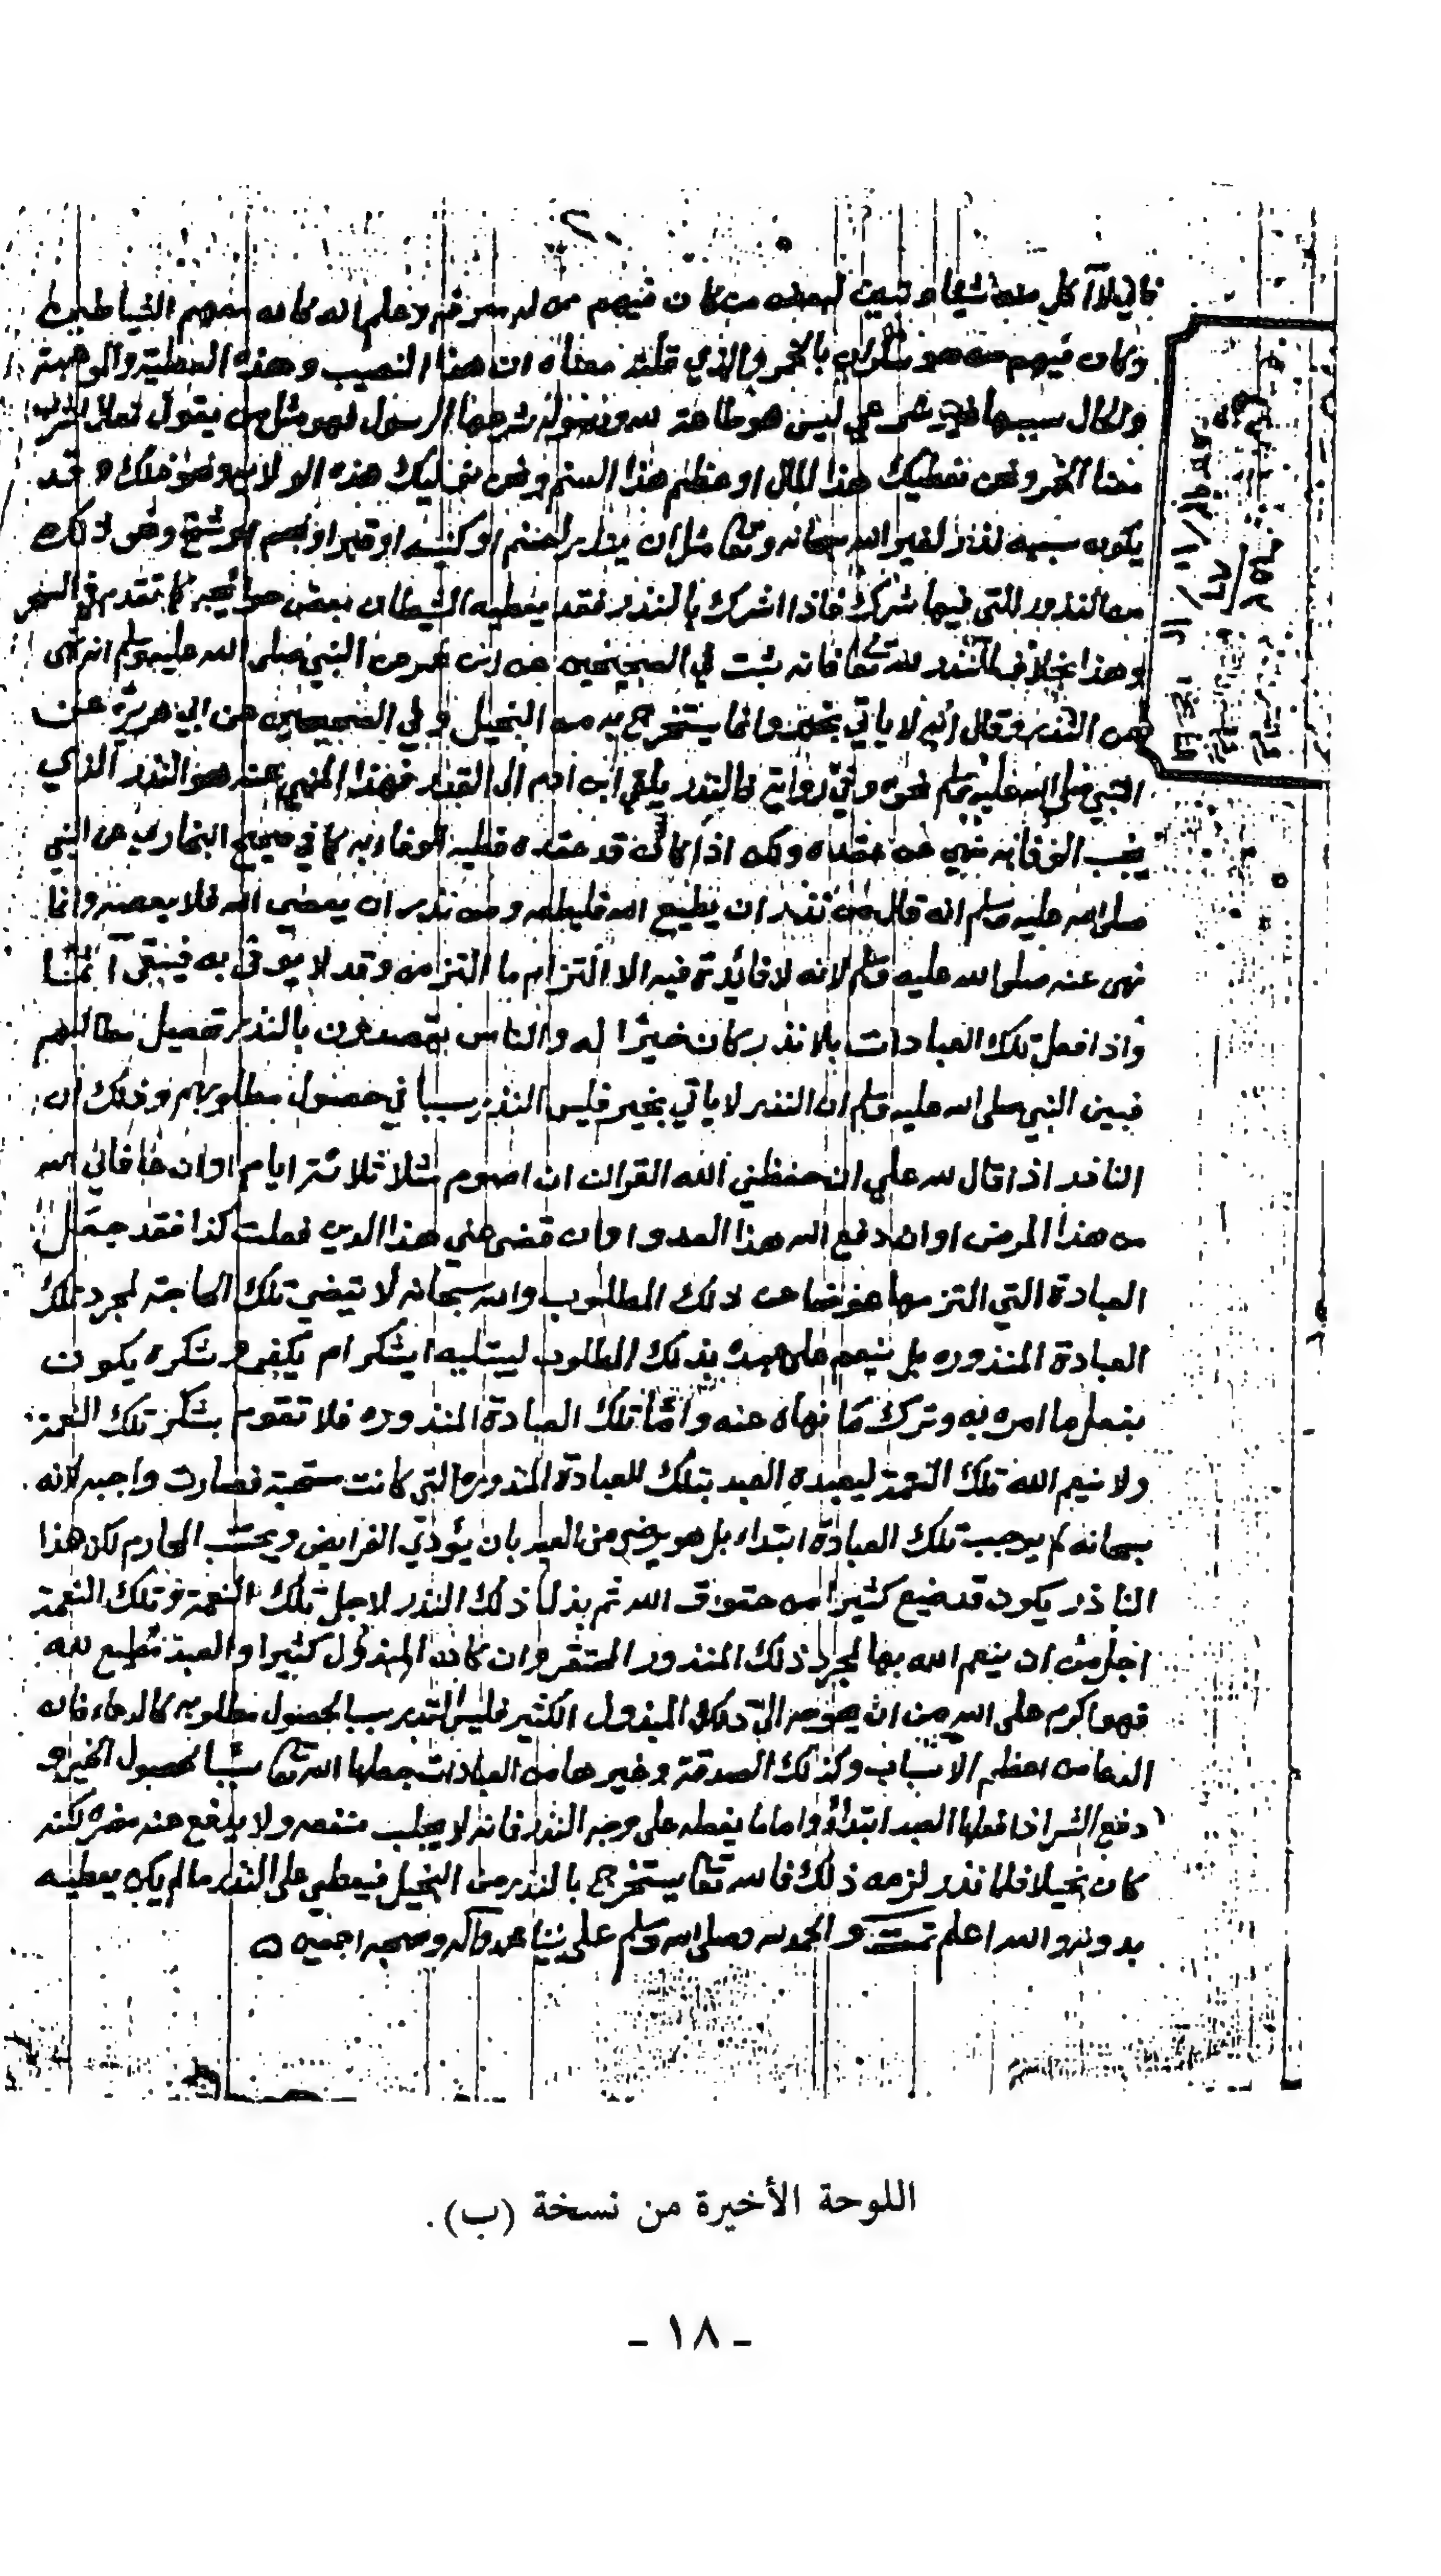 فاني لا آكل منه شيئا وتبين لبعضه من كان فيهم من لم يعرفه وعلم انه كانه معهم الشياطين
وكان فيهم من هو بالخمر والذي قلته معناه ان هذا النصيب وهذه العطية والموهبة
والحال سببها غير شرعي ليس هو طاعة لله ورسوله شرعها الرسول فهو مثل من يقول تعال اشرب
معنا الخمر ونحن نعطيك هذا المال او عظم هذا الصنم ونحن نوليك هذه الولاية ونحو ذلك وقد
يكون سببه نذر لغير الله سبحانه وتعا مثل ان ينذر لصنم او كنيسة او قبر او نجم او شيخ ونحو ذلك
من النذور التي فيها شرك فاذا اشرك بالنذر فقد يعطيه الشيطان بعض حوائجه كما تقدم في السحر
وهذا بخلاف النذر لله تعا فانه ثبت في الصحيحين عن ابن عمر عن النبي صلى الله عليه وسلم انه نهى
عن النذر وقال انه لا ياتي بخير وانما يستخرج به من البخيل وفي الصحيحين عن ابي هريرة عن
النبي صلى الله عليه وسلم نحوه وفي رواية فالنذر يلقي ابن ادم الى القدر فهذا المنهي عنه هو النذر الذي
يجب الوفا به نهي عن عقده ولكن اذا كان قد عقده فعليه الوفاء به كما في صحيح البخاري عن النبي
صلى الله عليه وسلم انه قال من نذر ان يطيع الله فليطعه ومن نذر ان يعصي الله فلا يعصه وانما
نهى عنه صلى الله عليه وسلم لانه لا فائدة فيه الا التزام ما التزمه وقد لا يوفي به فيبقى آثما
واذا فعل تلك العبادات بلا نذر كان خيرا له والناس يقصدون بالنذر تحصيل مطالبهم
فبين النبي صلى الله عليه وسلم ان النذر لا ياتي بخير فليس النذر سببا في حصول مطلوبهم وذلك ان
الناذر اذا قال لله علي ان حفظني الله القران ان اصوم مثلا ثلاثة ايام او ان عافاني الله
من هذا المرض او ان دفع الله هذا العدو او ان قضى عني هذا الدين فعلت كذا فقد جعل
العبادة التي التزمها عوضا عن ذلك المطلوب والله سبحانه لا يقضي تلك الحاجة لمجرد تلك
العبادة المنذوره بل ينعم على عبده بذلك المطلوب ليبتليه ايشكر ام يكفر وشكره يكون
بفعل ما امره به وترك ما نهاه عنه وأما تلك العبادة المنذوره فلا تقوم بشكر تلك النعمة
ولا ينعم الله تلك النعمة ليعبده العبد بتلك العبادة المنذورة التي كانت مستحبة فصارت واجبه لانه
سبحانه لم يوجب تلك العبادة ابتداء بل هو يرضى من العبد بان يؤدي الفرايض ويجتنب المحارم لكن هذا
الناذر يكون قد ضيع كثيرا من حقوق الله ثم بذل ذلك النذر لاجل تلك النعمة وتلك النعمة
اجل من ان ينعم الله بها لمجرد ذلك المنذور المحتقر وان كان المبذول كثيرا والعبد مطيع لله
فهو اكرم على الله من ان يحوجه الى ذلك المبذول الكثير فليس النذر سببا لحصول مطلوبه كالدعاء فانه
الدعا من اعظم الاسباب وكذلك الصدقة وغيرها من العبادات جعلها الله تعا سببا لحصول الخير و
دفع الشر اذا فعلها العبد ابتداء واما ما يفعله على وجه النذر فانه لا يجلب منفعه ولا يدفع عنه مضره لكنه
كان بخيلا فلما نذر لزمه ذلك فالله تعا يستخرج بالنذر من البخيل فيعطي على النذر ما لم يكن يعطيه
بدونه والله اعلم تمت والحمد لله وصلى الله وسلم على نبينا محمد وآله وصحبه اجمعين
اللوحة الأخيرة من نسخة (ب).
- ١٨ -